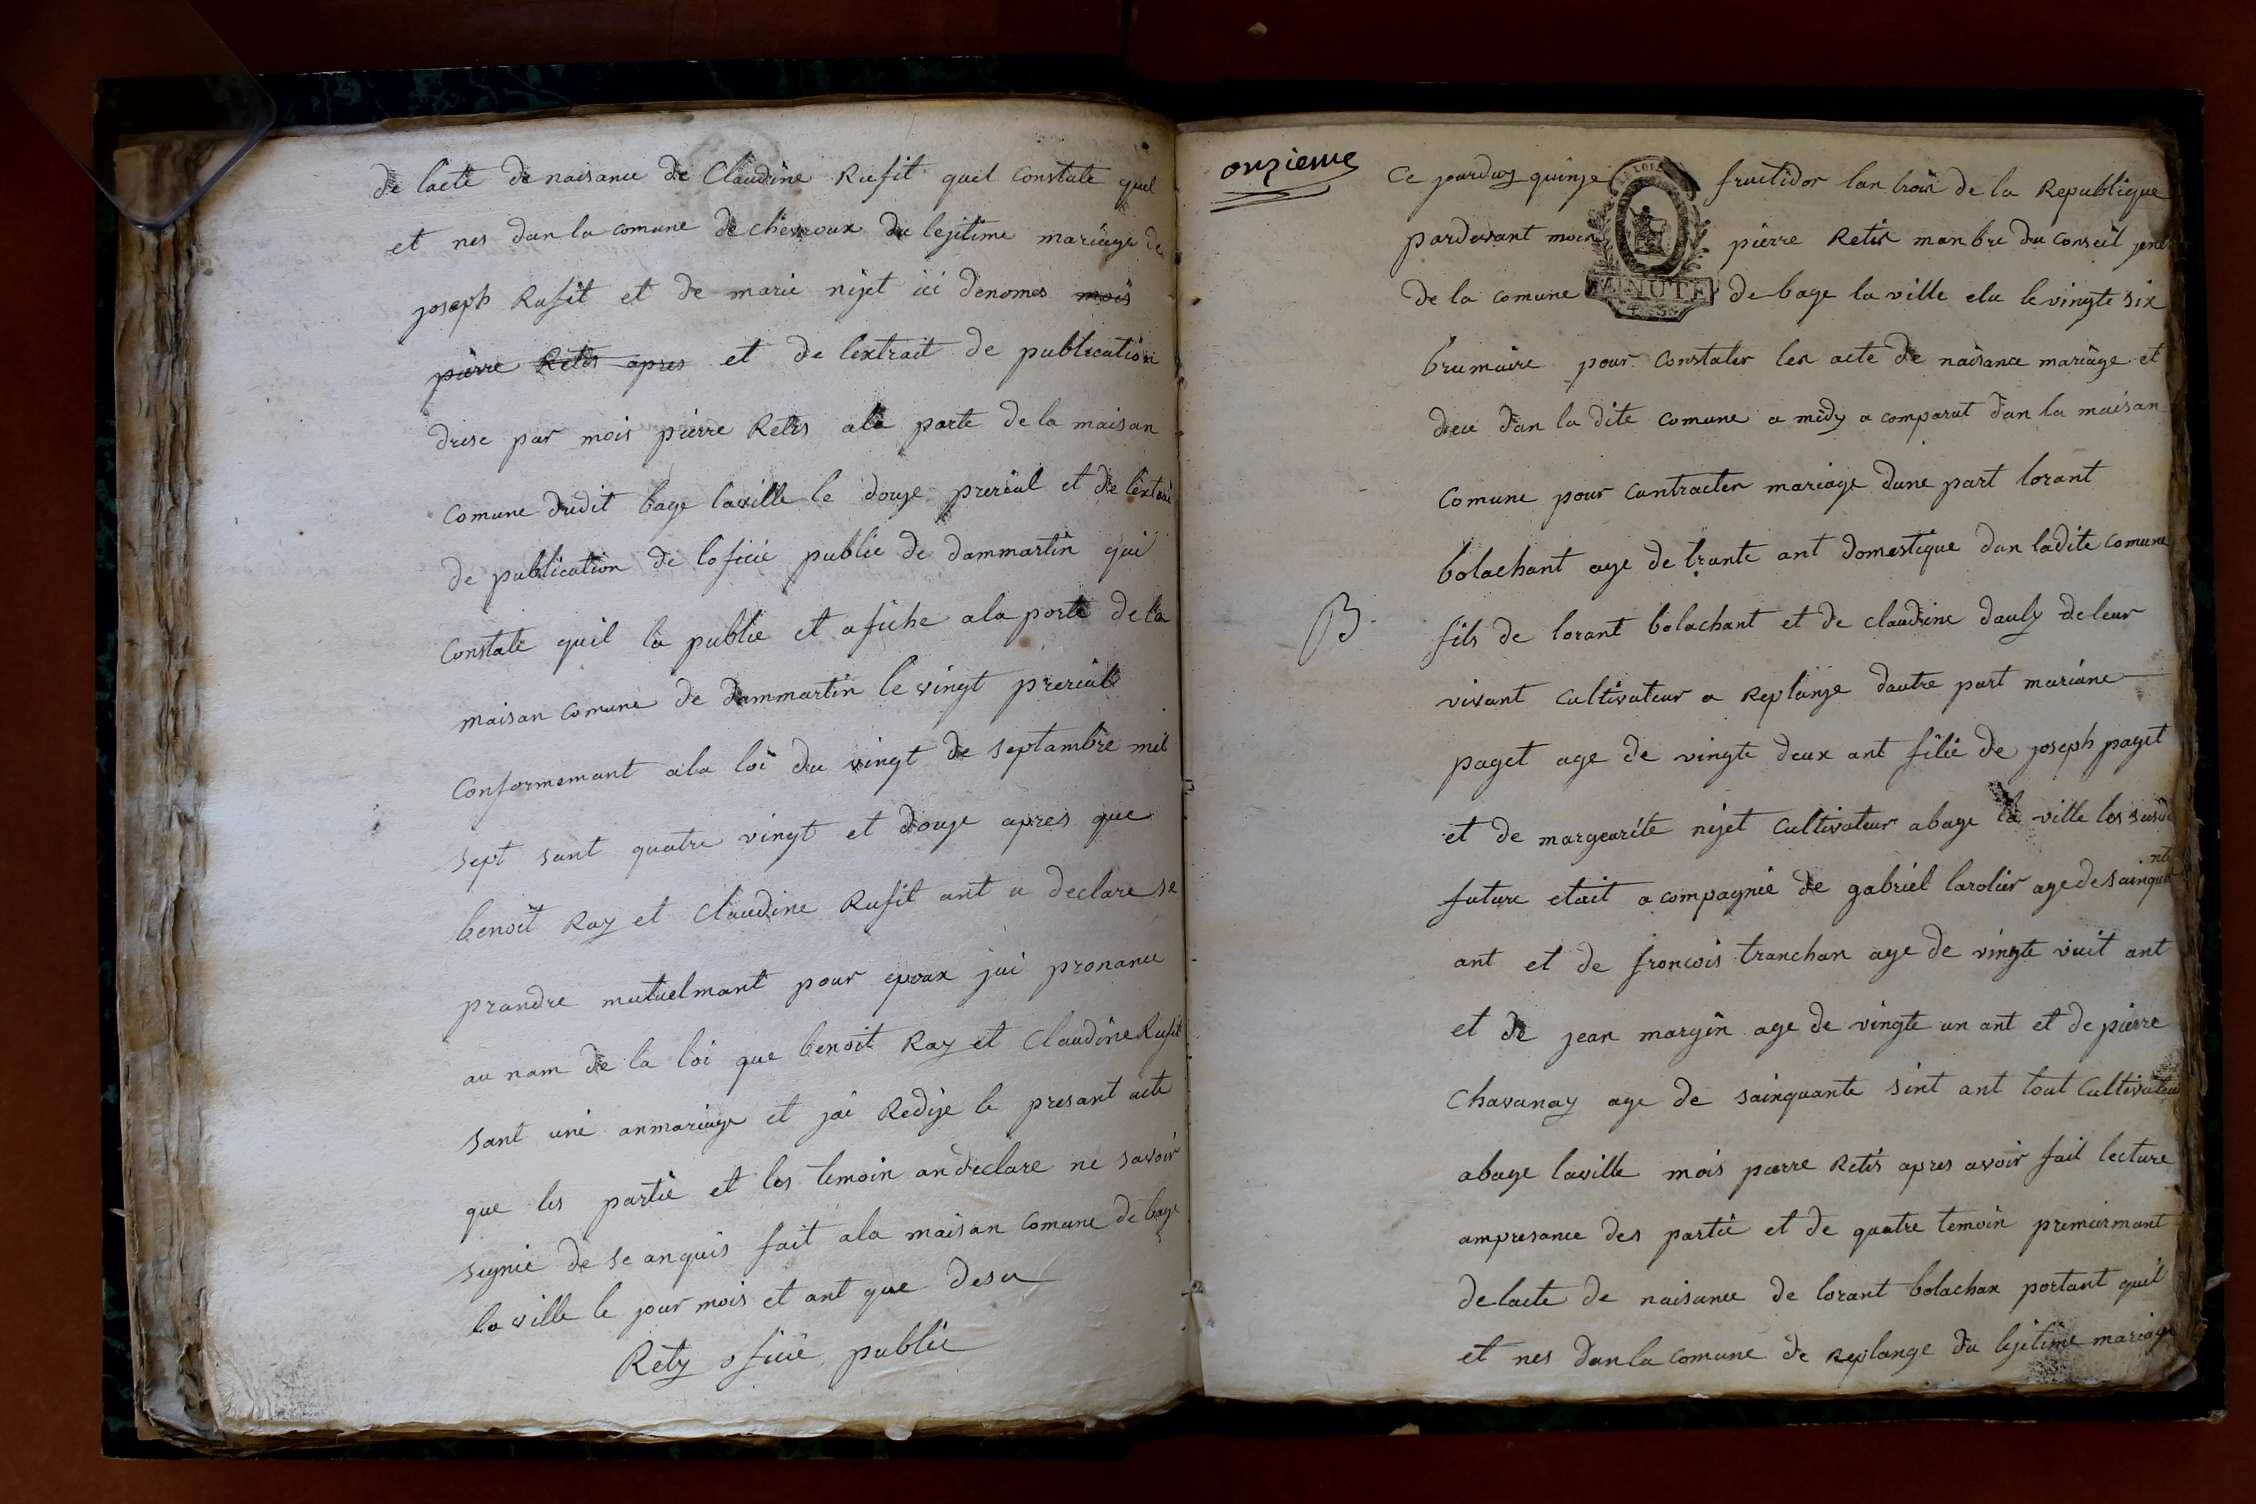 de lacte de naisance de Claudine Rufit quil Constate quel
et nes dan la comune de chevroux du lejitime mariage de
joseph Rufit et de marie nijet ici denomes mois
pierre Retis apres et de lextrait de publication
drese par mois pierre Retis ala porte de la maison
Comune dudit bage laville le douze prerial et de lextrai
de publication de loficie public de dammartin qui
Constate quil la publie et afiche ala porte de la
maison comune de dammartin le vingt prerial
Conformemant ala loi du vingt de septambre mil
sept sant quatre vingt et douze apres que
benoit Ray et Claudine Rufit ant a declare se
prandre mutuelmant pour epoux jai prononce
au nam de la loi que benoit Ray et Claudine Rufit
sant uni anmariage et jai Redije le presant acte
que les partie et les temoin andeclare ne savoir
signie de se anquis fait ala maison comune de bage
la ville le jour mois et ant que desu
Rety oficie public
onzieme
Ce jourduy quinze fructidor lan trois de la Republique
pardevant moi pierre Retis manbre du Conseil jene
de la comune de bage la ville elu le vingte six
MINUTE
brumaire pour Constater les acte de naisance mariage et
dece dan la dite comune a midy a comparut dan la maison
Comune pour contracter mariage dune part lorant
bolachant age de trante ant domestique dan ladite comune
B
fils de lorant bolachant et de claudine dauly de leur
vivant Cultivateur a Replange dautre part mariane
paget age de vingte deux ant filie de joseph paget
et de margearite nijet Cultivateur abage la ville les susdi
future etait acompagnie de gabriel larolier age de sainquante
ant et de francois tranchan age de vingte vuit ant
et de jean margin age de vingte un ant et de pierre
Chavanay age de sainquante sint ant tout Cultivateur
abage laville mois pierre Retis apres avoir fait lecture
ampresance des partie et de quatre temoin premiermant
de lacte de naisance de lorant bolachan portant quil
et nes dan la comune de Replange du lejitime mariage